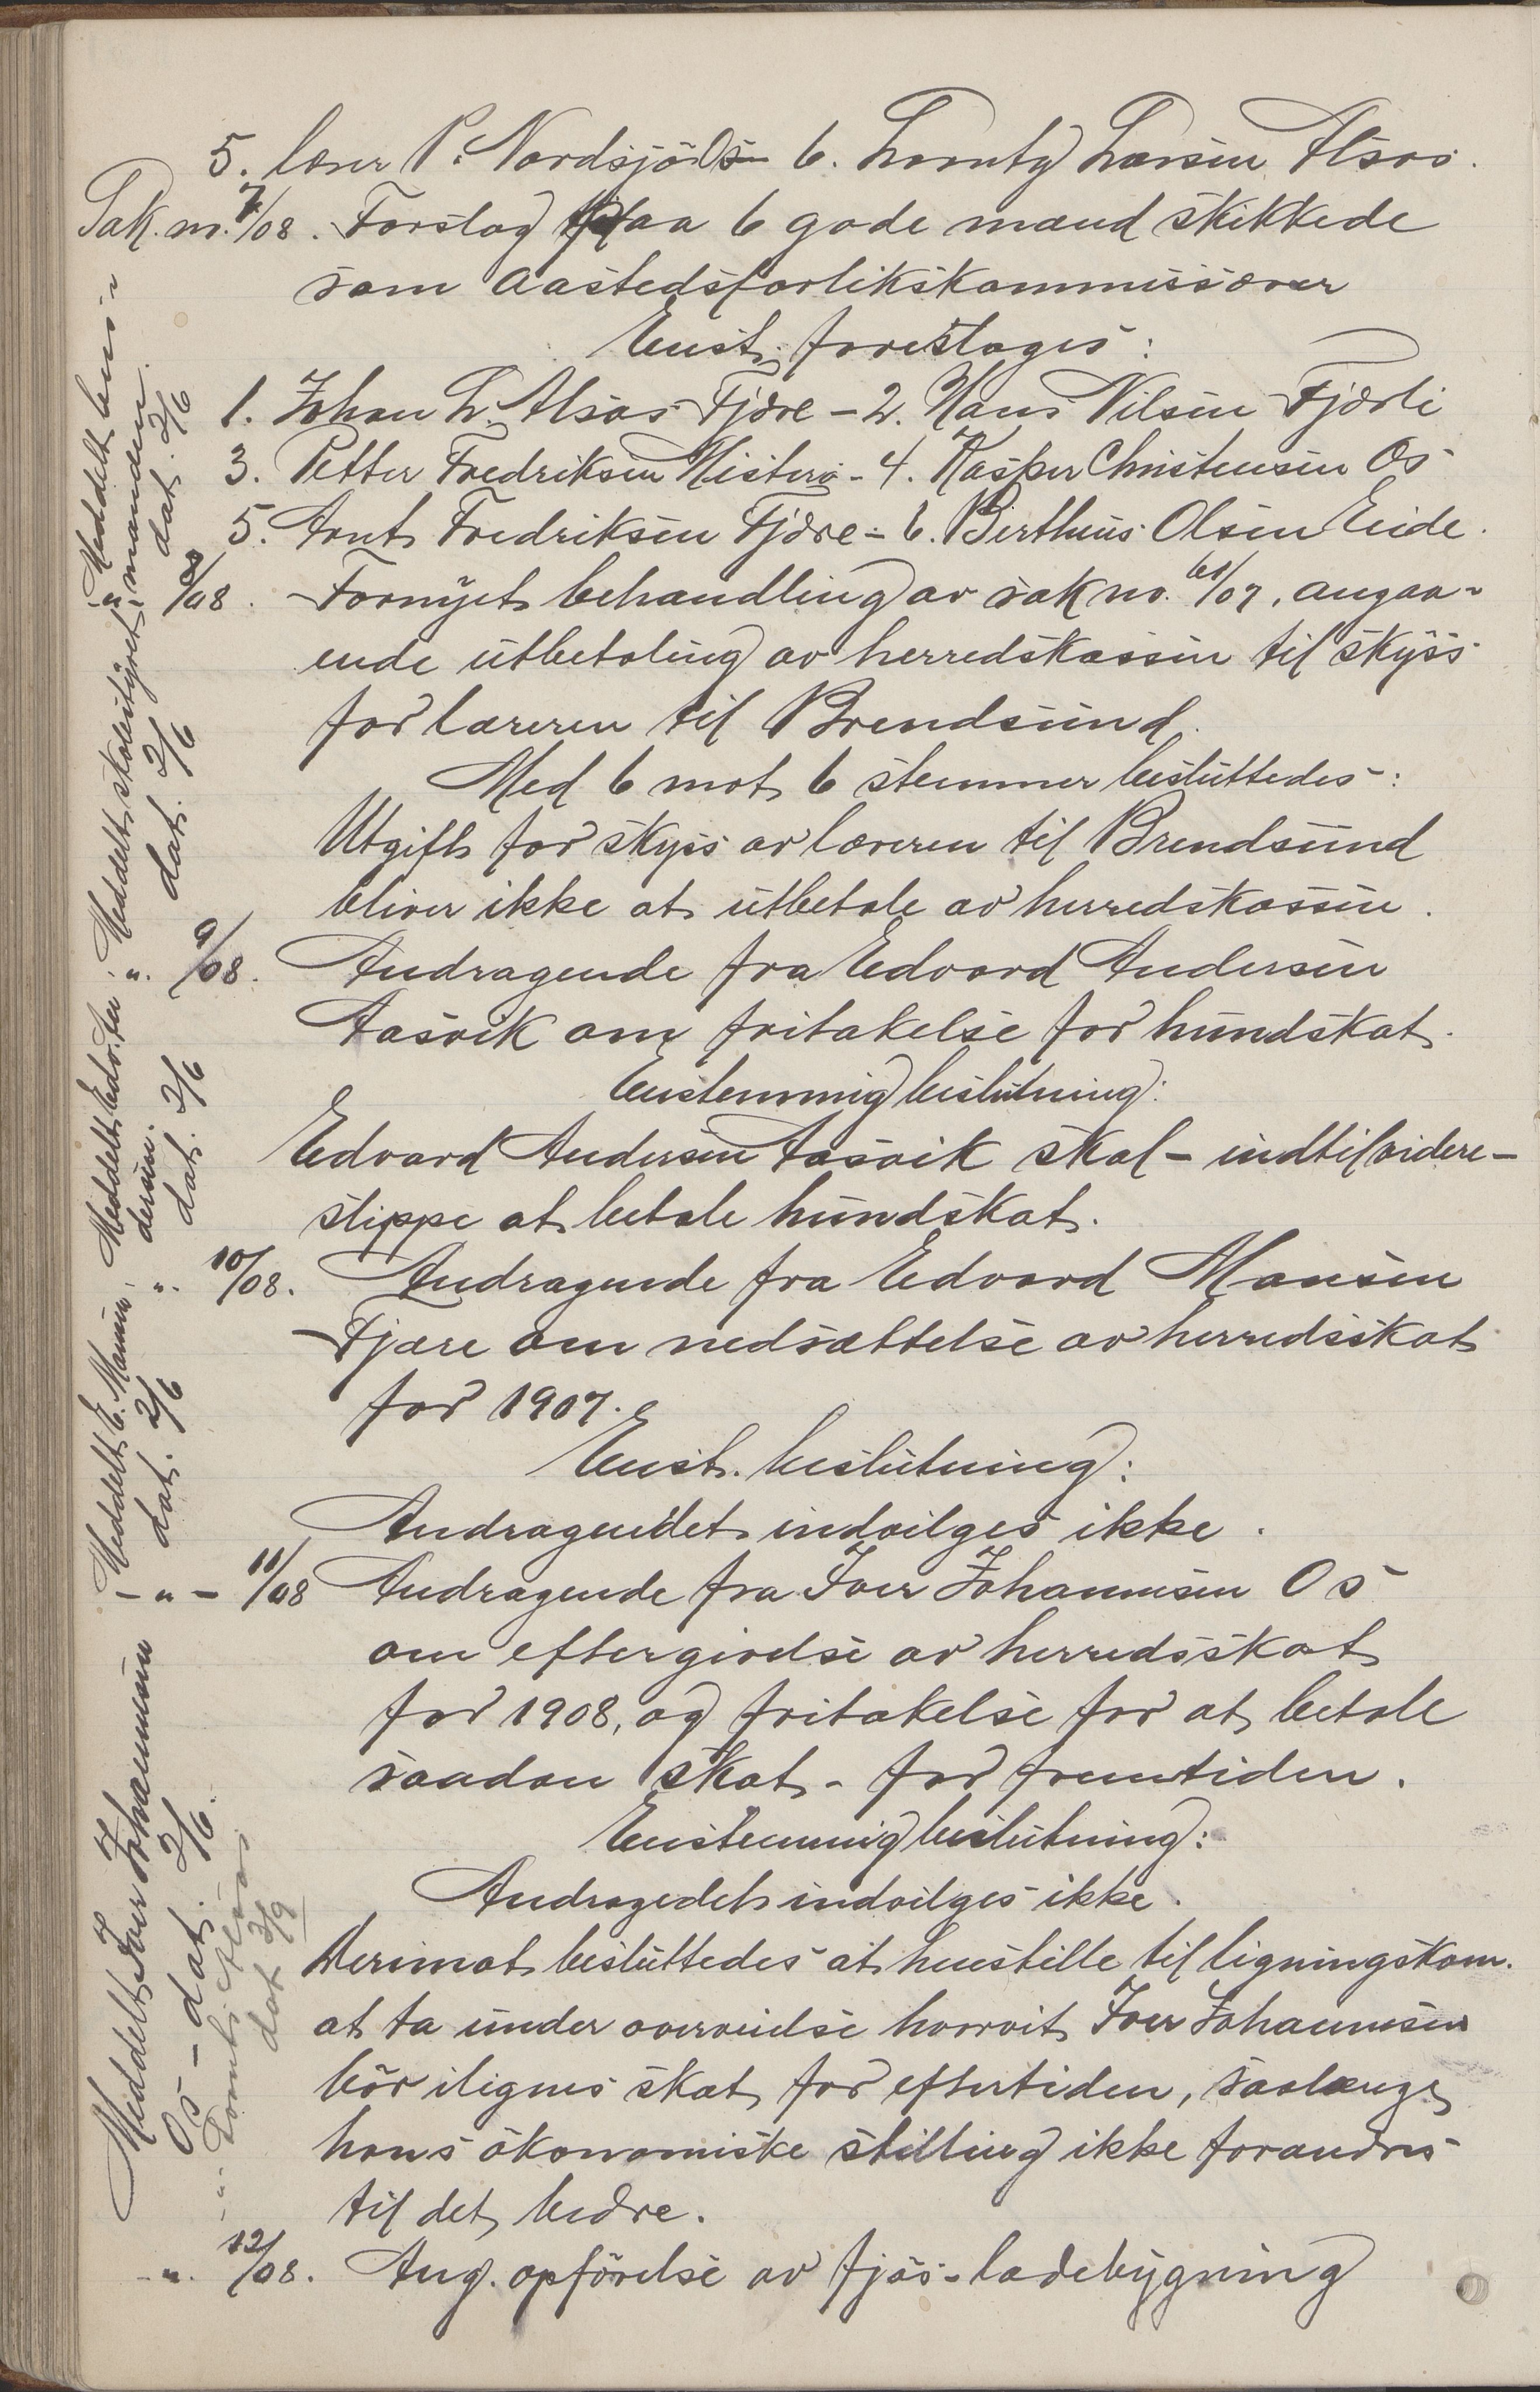 5. lærer P. Nordsjö Os 6. Larsen Alsos.
Sak. nr. 7/08. Forslag paa 6 gode mænd skikkede
som aastedsforlikskommissærer
Enst. foreslages:
1. Johan L. Alsos Fjære - 2. Hans Nilsen Fjærli
3. Petter Fredriksen Misterö - 4. Kasper Christensen Os
5. Arnt Fredriksen Fjære - 6. Birthius Olsen Eide.
" 8/08. Fornyet behandling av sak nr. 61/07, angaa-
ende utbetaling av herredskassen til skyss
for læreren til Brendsund.
Med 6 mot 6 stemmer besluttedes:
Utgift for skyss av læreren til Brendsund
bliver ikke at utbetale av herredskassen.
". 9/08. Andragende fra Edvard Andersen
Aasvik om fritakelse for hundskat.
Enstemmig beslutning:
Edvard Andersen Aasvik skal - indtil videre -
slippe at betale hundskat.
". 10/08. Andragende fra Edvard Monsen
Fjære om nedsættelse av herredsskat
for 1907.
Enst. beslutning:
Andragendet indvilges ikke.
- " - 11/08 Andragende fra Iver Johannesen Os
om eftergivelse av herredsskat
for 1908, og fritakelse for at betale
saadan skat - for fremtiden.
Enstemmig beslutning:
Andragedet indvilges ikke.
Derimot besluttedes at henstille til ligningskom.
at ta under overveielse hvorvit Iver Johannesen
bör ilignes skat for eftertiden, saalænge
hans ökonomiske stilling ikke forandres
til det bedre.
- ". 12/08. Ang. opförelse av fjös-ladebygning
Meddelt lens-
manden.
dat. 2/6
Meddelt skolestyret
dat. 2/6
Meddelt Edv. An-
dersen.
dat. 2/6
Meddelt E. Monsen
dat. 2/6
Meddelt Iver Johannesen
Os - dat. 2/6.
Alsos
dat 3/9